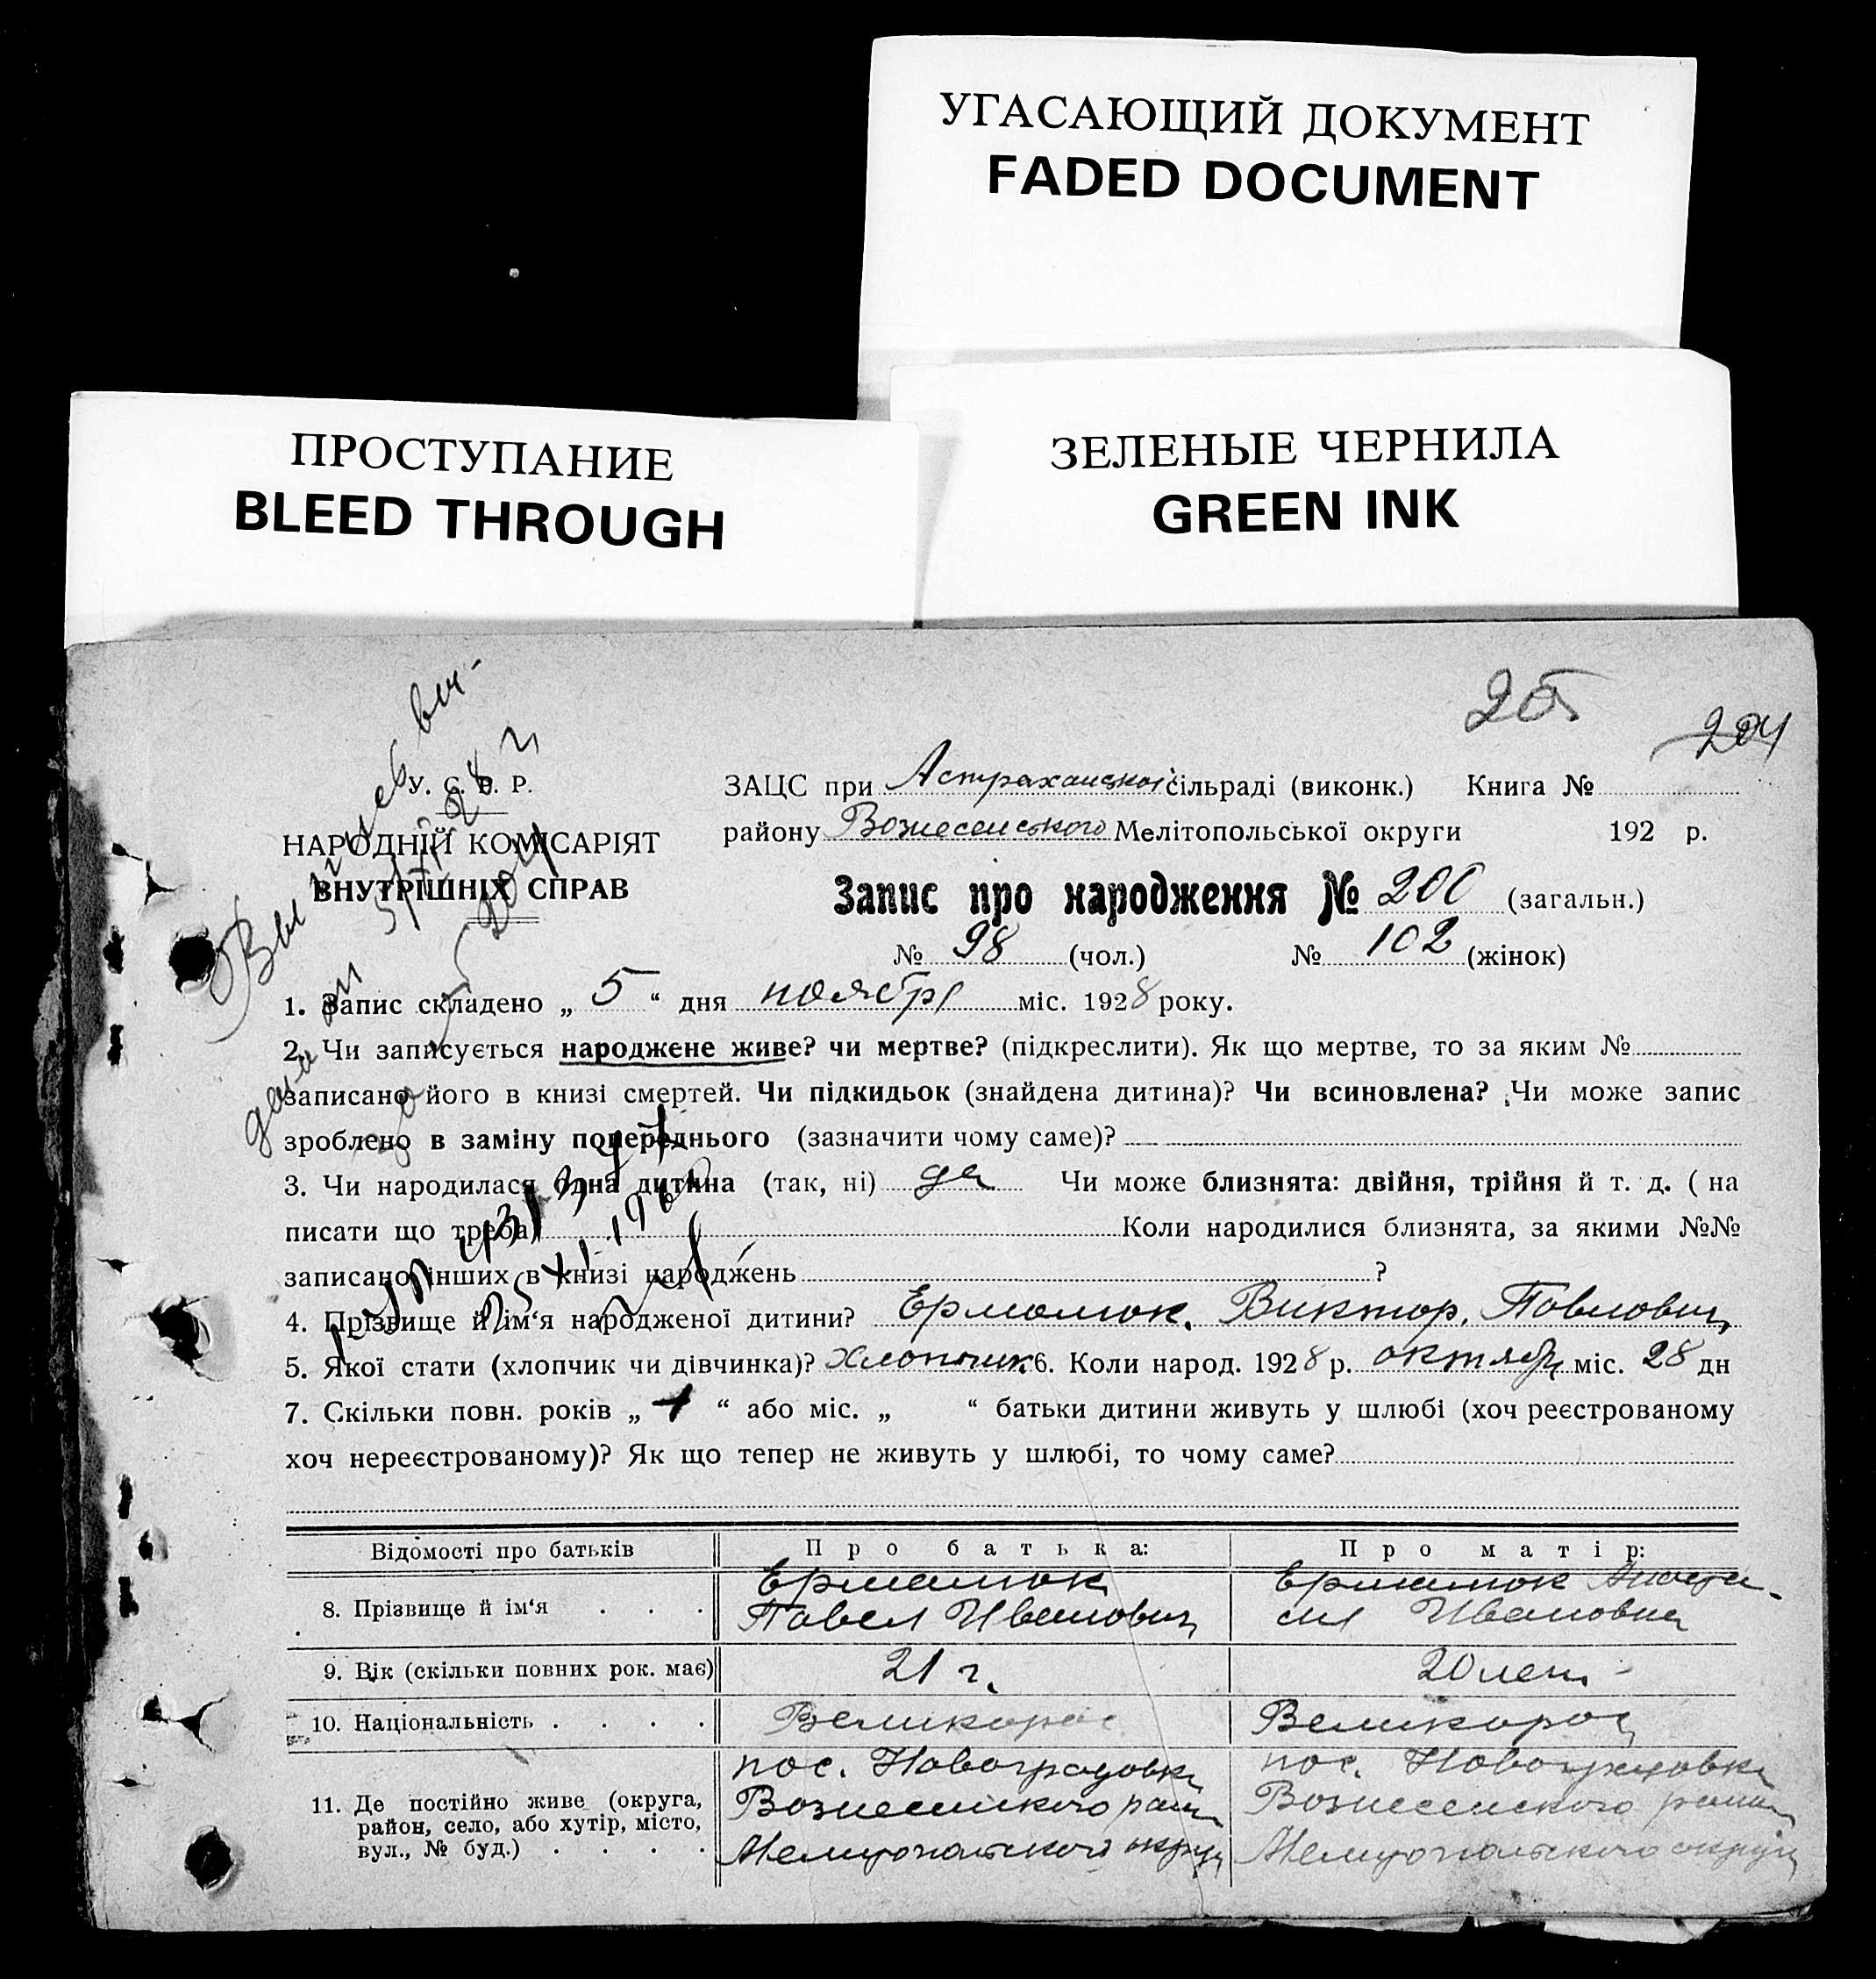 УГАСАЮЩИЙ ДОКУМЕНТ
FADED DOCUMENT
ПРОСТУПАНИЕ
BLEED THROUGH
ЗЕЛЕНЫЕ ЧЕРНИЛА
GREEN INK
204
У. С. Р. Р.
НАРОДНІЙ КОМІСАРІЯТ
ВНУТРІШНІХ СПРАВ
ЗАЦС при Астраханской сільраді (виконк.) Книга №
району Вознесенського Мелітопольської округи 192 р.
Запис про народження № 200 (загальн.)
№ 98 (чол.) № 102 (жінок)
1. Запис складено „ 5 “ дня ноября міс. 1928 року.
2. Чи записується народжене живе? чи мертве? (підкреслити). Як що мертве, то за яким №
записано його в книзі смертей. Чи підкидьок (знайдена дитина)? Чи всиновлена? Чи може запис
зроблено в заміну попереднього (зазначити чому саме)?
3. Чи народилася одна дитина (так, ні) да Чи може близнята: двійня, трійня й т. д. ( на
писати що треба) Коли народилися близнята, за якими №№
записано інших в книзі народжень ?
4. Прізвище й ім‘я народженої дитини? Ермолюк. Виктор. Павлович
5. Якої стати (хлопчик чи дівчинка)? Хлопчик 6. Коли народ. 1928 р. октября міс. 28 дн
7. Скільки повн. років „ 1 “ або міс. „ “ батьки дитини живуть у шлюбі (хоч реєстрованому
хоч нереєстрованому)? Як що тепер не живуть у шлюбі, то чому саме?
Відомості про батьків Про батька: Про матір:
8. Прізвище й ім‘я . . . Ермалюк Павел Иванович Ермалюк Анастасия Ивановна
9. Вік (скільки повних рок. має) 21 г. 20 лет
10. Національність . . . . Великорос Великорос
11. Де постійно живе (округа,
район, село, або хутір, місто,
вул., № буд.) . . . .
пос. Новоградовка
Вознесенского района
Мелитопольского округа
пос. Новоградовка
Вознесенского района
Мелитопольского округа